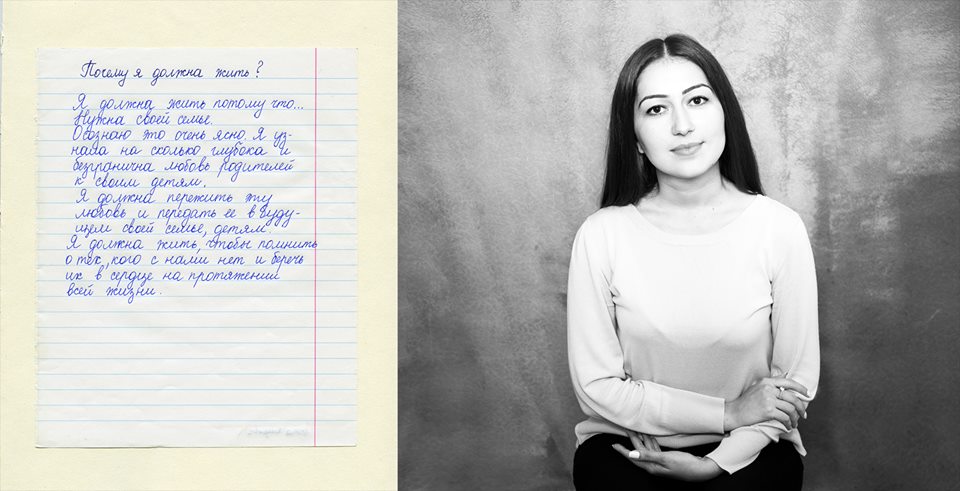 Почему я должна жить?
Я должна жить потому что...
Нужна своей семье.
Осознаю это очень ясно. Я уз-
нала на сколько глубока и
безгранична любовь родителей
к своим детям.
Я должна пережить эту
любовь и передать ее в буду-
щем своей семье, детям
Я должна жить, чтобы помнить
о тех, кого с нами нет и беречь
их в сердце на протяжении
всей жизни.